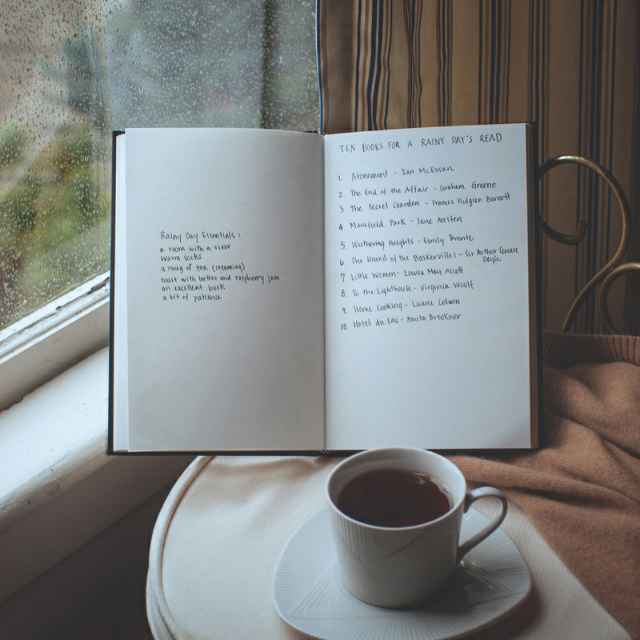 Rainy Day Essentials :
a room with a view
warm socks
a mug of tea (steaming)
toast with butter and raspberry jam
an excellent book
a bit of patience
TEN BOOKS FOR A RAINY DAY'S READ
1. Atonement - Ian McEwan
2. The End of the Affair - Graham Greene
3. The Secret Garden - Frances Hodgson Burnett
4. Mansfield Park - Jane Austen
5. Wuthering Heights - Emily Bronte
6. The Hound of the Baskervilles - Sir Arthur Conan
Doyle
7. Little Women - Louisa May Alcott
8. To the Lighthouse - Virginia Woolf
9. Home Cooking - Laurie Colwin
10. Hotel du Lac - Anita Brookner